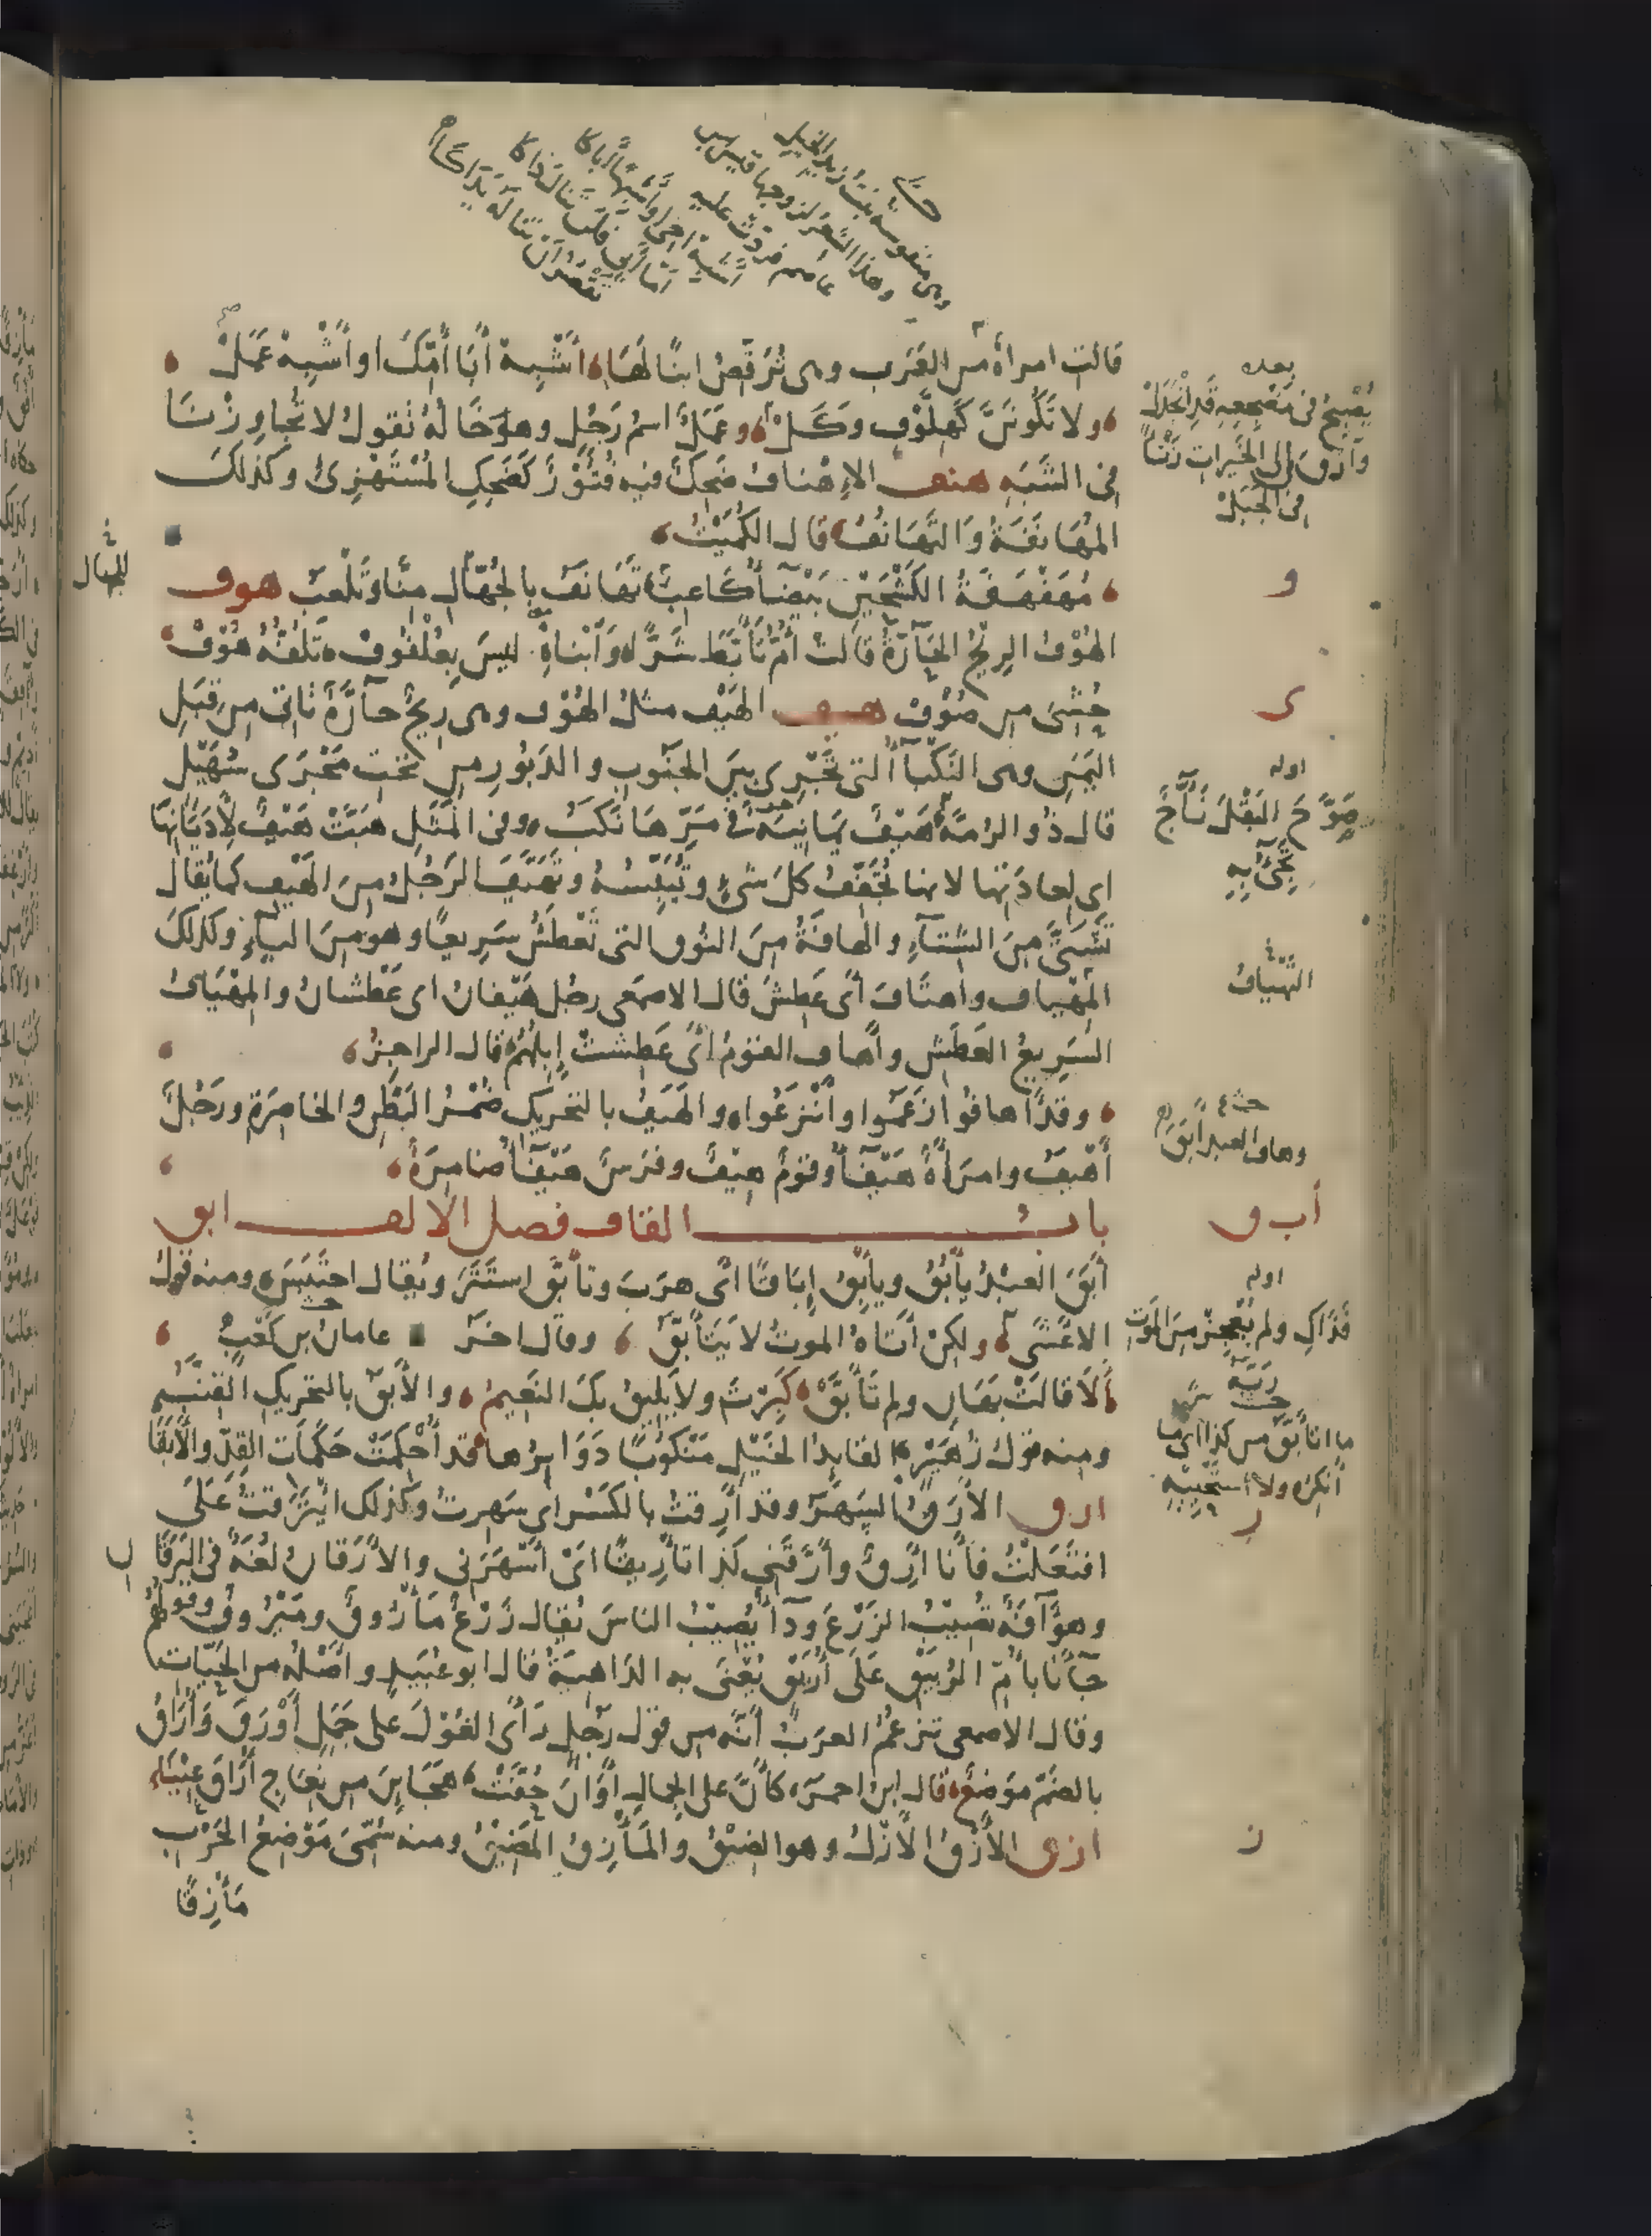 حـ
وهي منفوسة بنت زيد الخيل
وهذا الشعر لزوجها قيس بن
عاصم فردت عليه
أشبه أخي أو أشبهن أباكا
أما أبي فلن تنال ذاكا
تقصر أن تناله يداكا
قالت امرأة من العَرَب وهي تُرَقِّصُ ابنًا لَهَا، أَشْبِهْ أَبَا أُمِّكَ او أَشْبِهْ عَمَلْ
ولا تَكُونَنَّ كَهِلَّوْفٍ وَكَلْ، وعَمَلْ اسمُ رَجُلٍ وهو خَالهُ تقولُ لا تُجاوِزْنَا
في الشَبَهِ هنف الإهنافُ ضَحِكٌ فيه فُتُوْرٌ كَضَحِكِ المُسْتَهْزِئِ وكذلكَ
المُهَانَفَةُ وَالتَّهَانُفُ قال الكُمَيْتُ
مُهَفْهَفَةُ الكَشْحَيْنِ بَيْضَآءُ كاعِبٌ تَهَانَفُ بالجُهَّالِ مِنَّا وَتَلْعَبُ هوف
الهُوْفُ الرِيحُ الحَآرَّةُ قالتْ أُمُّ تَأَبَّطَ شَرًّا، وَابْنَاهْ ليسَ بِعُلْفُوفْ، تَلُفُّهُ هُوْفْ
حُشِيَ من صُوْفْ هيف الهَيْف مثلُ الهُوْف وهي رِيحٌ حآرَّةٌ تاتي مِن قِبَلِ
اليَمَنِ وهي النَكْبآءُ التي تَجْرِي بينَ الجَنُوبِ والدَبُورِ من تحتِ مَجْرَى سُهَيْلٍ
قال ذُو الرُمَّة، هَيْفٌ يَمَانِيَةٌ في مَرِّهَا نَكَبُ، وفي المَثَلِ هَبَّتْ هَيْفٌ لأَدْيَانِهَا
اي لعادَتِها لانها تُجَفِّفُ كلَ شَيءٍ وتُيَبِّسُهُ وتَهَيَّفَ الرَجُلُ مِنَ الهَيْفِ كما يُقال
تَشَتَّى مِنَ الشِتآءِ والهافَةُ مِنَ النُوق التي تَعْطَشُ سَرِيعًا وهو مِنَ اليآءِ وكذلكَ
المِهْيَاف واهتافَ أي عَطِشَ قال الاصمعي رجُل هَيْفانُ اي عَطْشانُ والمِهْيَافُ
السَرِيعُ العَطَشِ وأَهاف القومُ أي عَطِشتْ إِبِلُهُمْ قال الراجزُ
وقد أَهافُوا زَعَمُوا وأَنْزَعُوا، والهَيَفُ بالتحريكِ ضُمْرُ البَطْنِ والخاصِرَةِ ورَجُلٌ
أَهْيَفُ وامرَأَةٌ هَيْفَآءُ وقومٌ هِيْفٌ وفرَسٌ هَيْفَآءُ ضامِرَةٌ
باب القاف فصل الالف ابق
أَبَقَ العبْدُ يَأْبُقُ ويأبِقُ إِبَاقًا أي هرَبَ وتأبَّقَ استَتَرَ ويُقال احتَبَسَ، ومنه قولُ
الاعشَى، ولكِنْ أتاهُ الموتُ لا يَتَأَبَّقُ، وقال اخر عامانُ بن كَعْبٍ
أَلَا قالَتْ بَهَانِ ولم تَأَبَّقْ، كَبِرْتَ ولا يَلِيقُ بكَ النَعِيمُ، والأَبَقُ بالتحريكِ القِنَّبُ
ومنه قولُ زُهَيْرٍ القايِدُ الخَيْلِ مَنْكُوبًا دَوَابِرُها، قد أُحْكِمَتْ حَكَمَاتِ القِدِّ والأَبَقَا
ارق الأَرَقُ السَهَرُ وقد أَرِقتُ بالكَسْر اي سَهِرتُ وكذلك ائْتَرَقتُ عَلَى
افتَعَلْتُ فأنا أَرِقٌ وأَرَّقَنِي كذا تأرِيقًا اي أَسْهَرَني والأَرَقانُ لغَةٌ في اليَرَقانِ
وهو آفَةٌ تُصِيبُ الزَرْعَ ودَآءٌ يُصِيبُ الناسَ يُقال زَرْعٌ مَأْرُوقٌ ومَيْرُوقٌ وقولُهُم
جَآءَنا بأُمِّ الرُبَيْقِ عَلَى أُرَيْقٍ يُعْنَى به الدَاهِيَةُ قال ابو عُبَيدٍ وأَصْلُهُ من الحَيَّاتِ
وقال الاصمعي تزعُمُ العرَبُ أَنَّه من قول رجُلٍ رَأَى الغُوْلَ على جَمَلٍ أَوْرَقَ وأُرَاقُ
بالضَمِّ موضعٌ، قال ابن احمر، كأَنَّ على الجمالِ أَوَانَ حُفَّتْ، هَجَاينَ من نِعَاجِ أُرَاقَ عِيْنَا
ازق الأَزْقُ الأَزْلُ وهو الضِيْقُ والمَأْزِقُ المَضِيْقُ ومنه سُمِّيَ مَوْضِعُ الحَرْبِ
مَأْزِقًا
بعده
يُصْبِحُ في مَضْجعِهِ قَدِ انْجَدَلْ
وَارْقَ إلى الخَيراتِ زَنْأً
في الجَبَلْ
للجهال
و
ى
اوله
صَوَّحَ البَقْلَ نَأَّاجٌ
تَجِيءُ بِهِ
حـ
وهاف العبد أبق
أ ب ق
اوله
فَذَاكِ ولم يُعْجِزْ مِنَ الموتِ
رَبَّهُ
حـ
ما اتأبّق من كذا اي ما
أنكره ولا استحييه
ر
ز